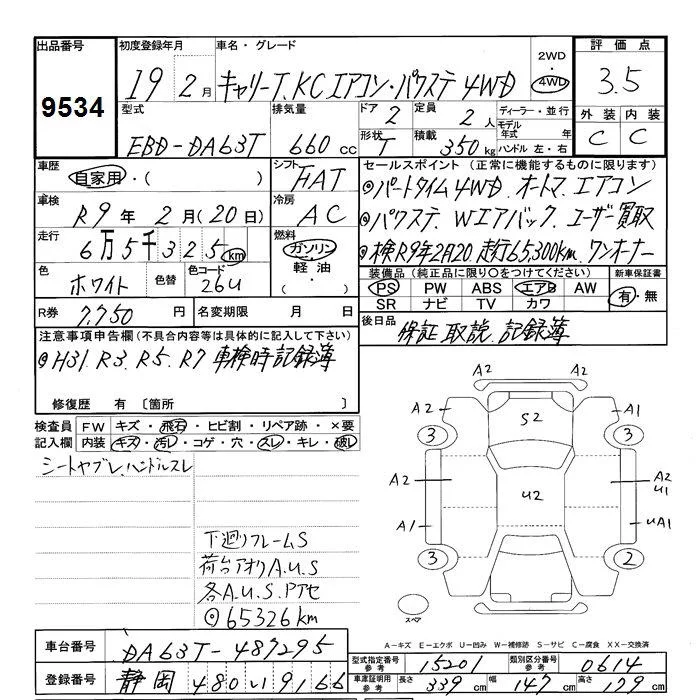 出品番号 初度登録年月 車名・グレード 2WD 評価点
9534 19 2月 キャリーT、KCエアコン・パワステ4WD 4WD 3.5
型式 排気量 ドア 2 定員 2人 ディーラー・並行 外装 内装
EBD-DA63T 660cc 形状 T 積載 350kg モデル年式 年 ハンドル 左・右 C C
車歴 自家用・( ) シフト FAT セールスポイント(正常に機能するものに限ります)
◎パートタイム4WD、オートマ、エアコン
車検 R9年2月(20日) 冷房 AC ◎パワステ、Wエアバック、ユーザー買取
走行 6万5千325km 燃料 ガソリン・軽油・( ) ◎検R9年2月20、走行65,300km、ワンオーナー
色 ホワイト 色替 色コード 26U 装備品(純正品に限り○をつけてください) 新車保証書
PS PW ABS エアB AW 有・無
SR ナビ TV カワ
R券 7,750円 名変期限 月 日 後日品 保証、取説、記録簿
注意事項申告欄(不具合内容等は具体的に記入して下さい)
◎H31、R3、R5、R7 車検時記録簿
修復歴 有〔箇所 〕
検査員記入欄 FW キズ・飛石・ヒビ割・リペア跡・×要
内装 キズ・汚レ・コゲ・穴・スレ・キレ・破レ
シートヤブレ、ハンドルスレ
下廻りフレームS
荷台アオリA.U.S
各A.U.S.Pアセ
◎65326km
A2
A2 S2 A1
3 3
A2 U2 A2 U1
A1 UA1
3 2
スペア
A2
A-キズ E-エクボ U-凹み W-補修跡 S-サビ C-腐食 XX-交換済
車台番号 DA63T-487295 型式指定番号 参考 15201 類別区分番号 参考 0614
登録番号 静岡 480 い 9166 車庫証明用 参考 長さ 339cm 幅 147cm 高さ 179cm